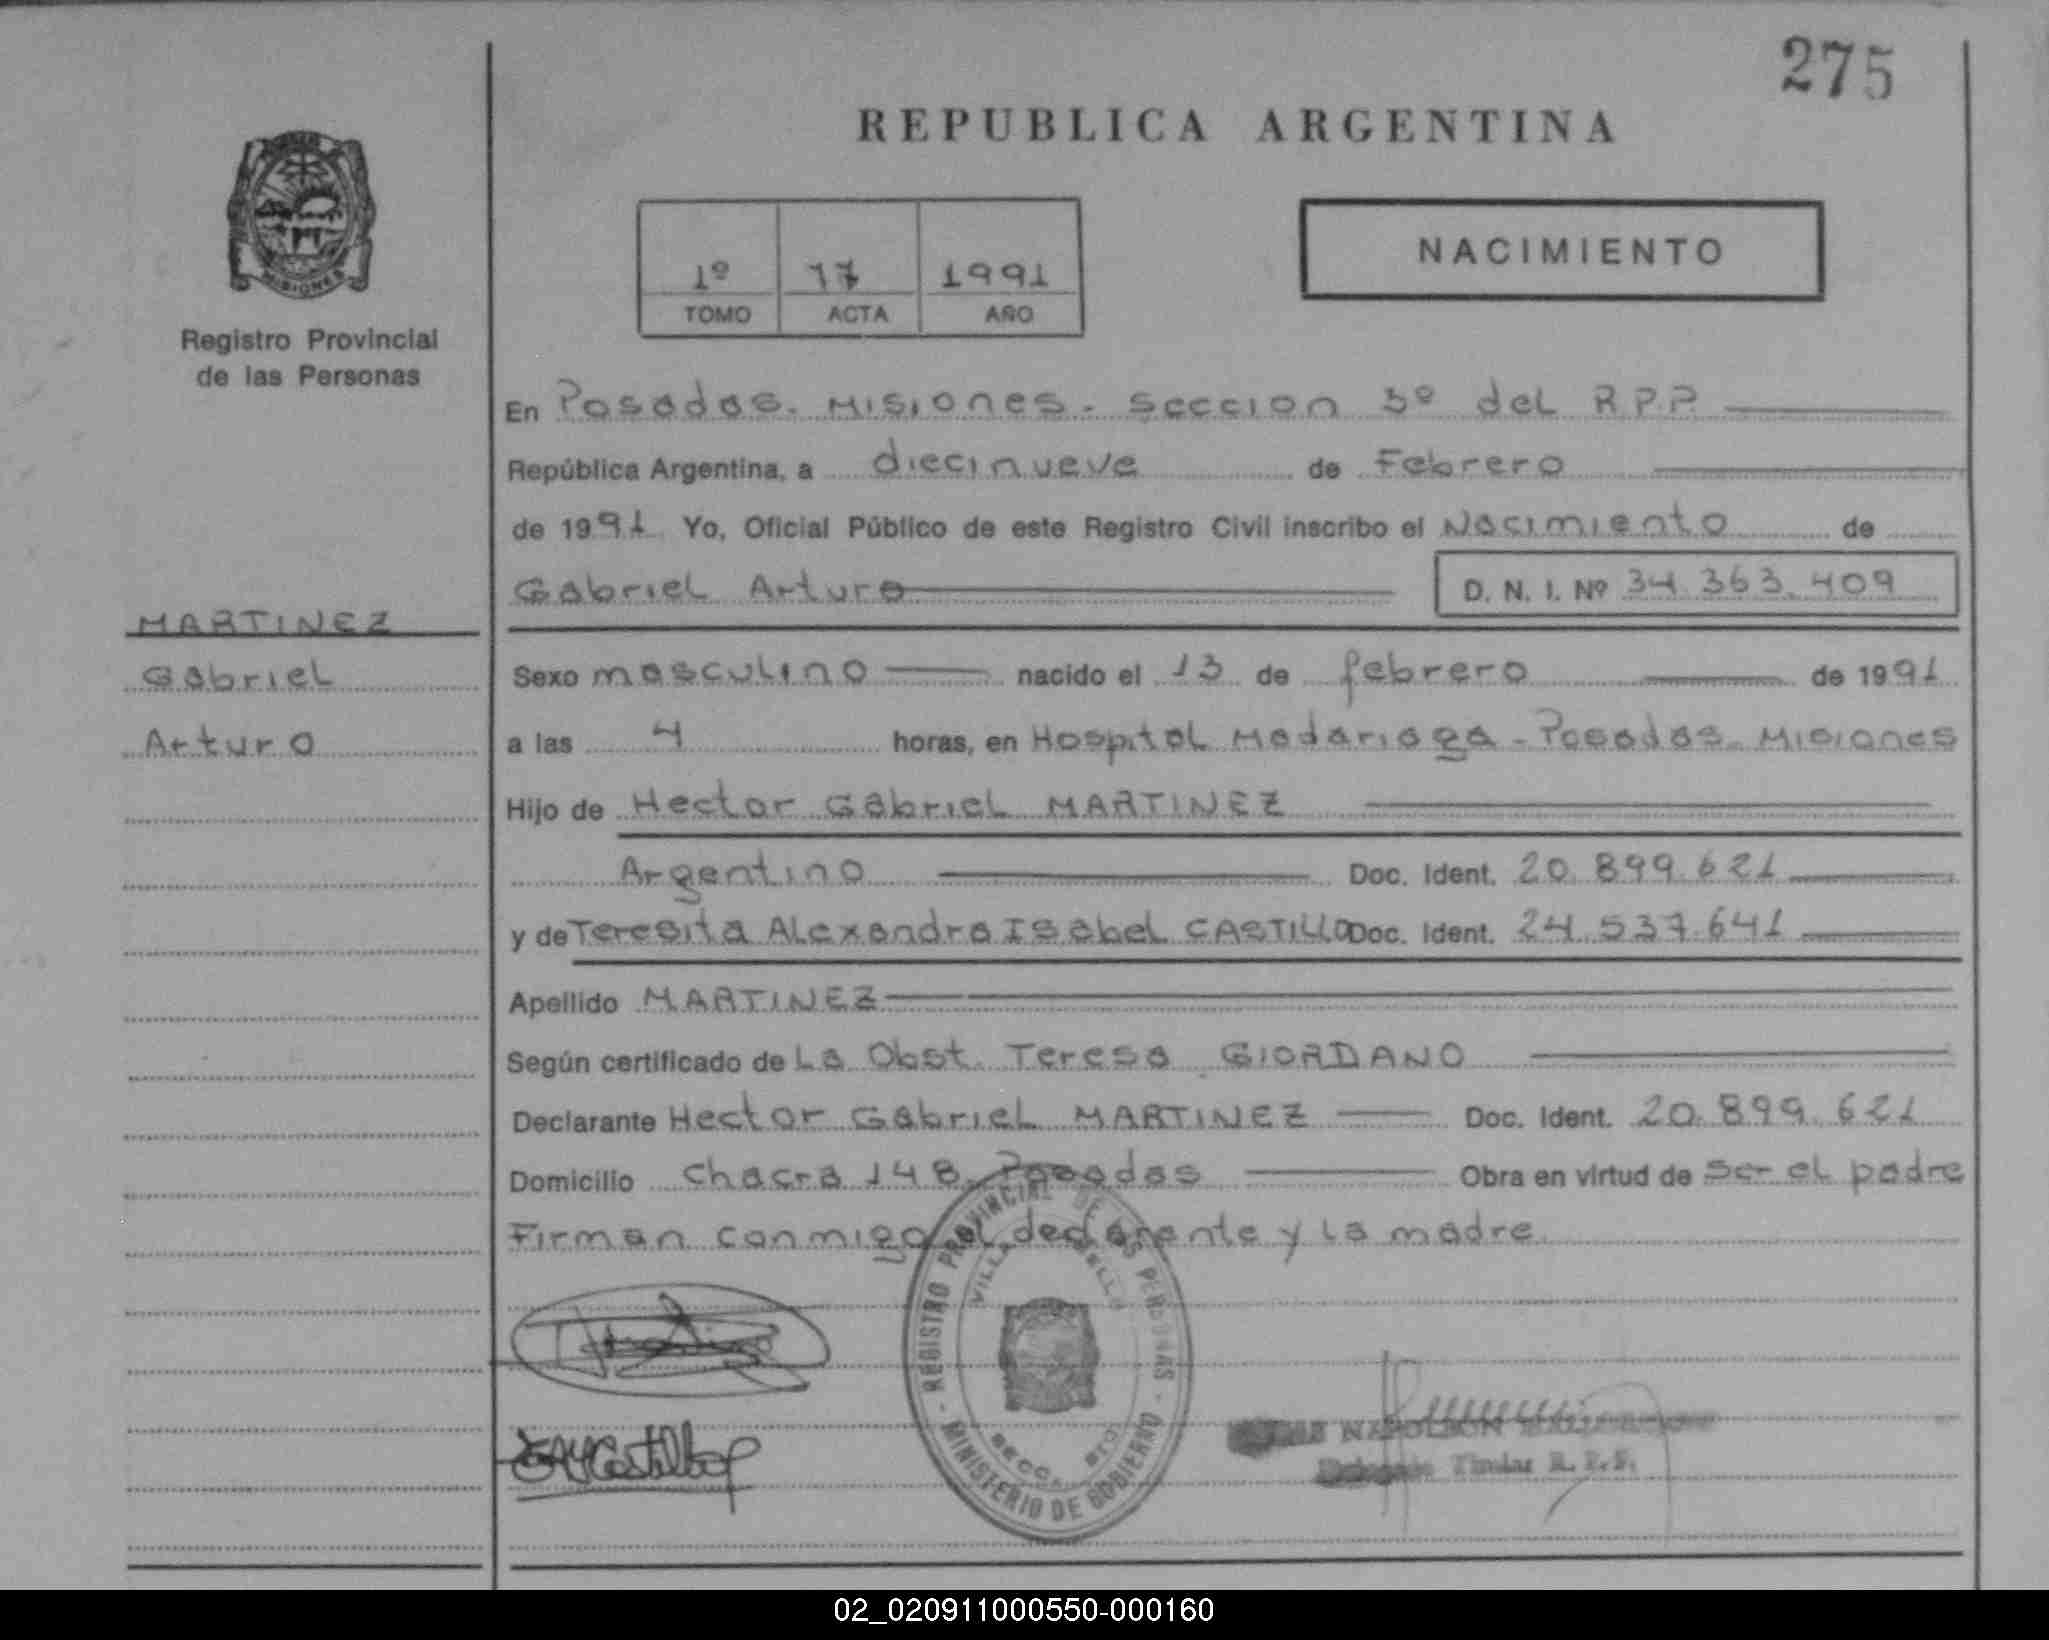 275
REPUBLICA ARGENTINA
NACIMIENTO
1º 17 1991
TOMO ACTA AÑO
MISIONES
Registro Provincial
de las Personas
En Posadas. Misiones. Seccion 5º del R.P.P.
República Argentina, a diecinueve de Febrero
de 1991 Yo, Oficial Público de este Registro Civil inscribo el Nacimiento de
Gabriel Arturo D. N. I. Nº 34.363.409
MARTINEZ
Gabriel
Arturo
Sexo masculino nacido el 13 de febrero de 1991
a las 4 horas, en Hospital Madariaga - Posadas. Misiones
Hijo de Hector Gabriel MARTINEZ
Argentino Doc. Ident. 20.899.621
y de Teresita Alexandra Isabel CASTILLO Doc. Ident. 24.537.641
Apellido MARTINEZ
Según certificado de La Obst. Teresa GIORDANO
Declarante Hector Gabriel MARTINEZ Doc. Ident. 20.899.621
Domicilio Chacra 148. Posadas Obra en virtud de ser el padre
Firman conmigo el declarante y la madre.
REGISTRO PROVINCIAL DE LAS PERSONAS
MINISTERIO DE GOBIERNO
VILLA
SECC.
NAPOLEON
Titular R.P.P.
02_020911000550-000160